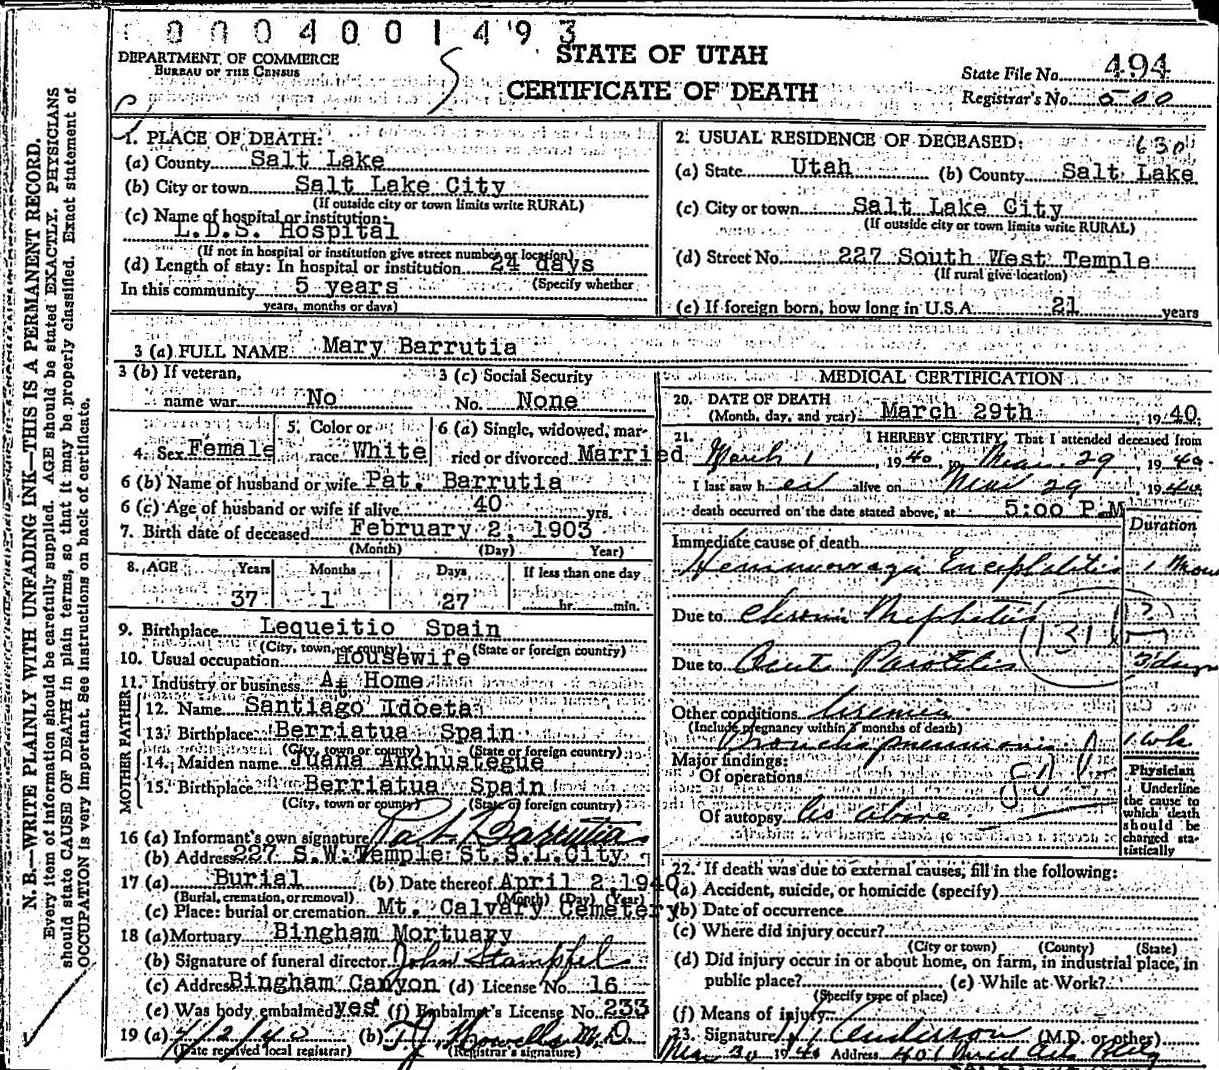 0004001493
DEPARTMENT OF COMMERCE
BUREAU OF THE CENSUS
STATE OF UTAH
CERTIFICATE OF DEATH
State File No. 494
Registrar's No. 500
N. B.—WRITE PLAINLY WITH UNFADING INK—THIS IS A PERMANENT RECORD.
Every item of information should be carefully supplied. AGE should be stated EXACTLY. PHYSICIANS
should state CAUSE OF DEATH in plain terms, so that it may be properly classified. Exact statement of
OCCUPATION is very important. See instructions on back of certificate.
1. PLACE OF DEATH:
(a) County Salt Lake
(b) City or town Salt Lake City
(If outside city or town limits write RURAL)
(c) Name of hospital or institution:
L.D.S. Hospital
(If not in hospital or institution give street number or location)
(d) Length of stay: In hospital or institution 24 days
(Specify whether
In this community 5 years
years, months or days)
2. USUAL RESIDENCE OF DECEASED: 630
(a) State Utah (b) County Salt Lake
(c) City or town Salt Lake City
(If outside city or town limits write RURAL)
(d) Street No. 227 South West Temple
(If rural give location)
(e) If foreign born, how long in U.S.A. 21 years
3 (a) FULL NAME Mary Barrutia
3 (b) If veteran,
name war No
3 (c) Social Security
No. None
4. Sex Female
5. Color or
race White
6 (a) Single, widowed, mar-
ried or divorced Married
6 (b) Name of husband or wife Pat. Barrutia
6 (c) Age of husband or wife if alive 40 yrs.
7. Birth date of deceased February 2, 1903
(Month) (Day) Year)
8. AGE Years Months Days If less than one day
37 1 27 hr. min.
9. Birthplace Lequeitio Spain
(City, town, or county) (State or foreign country)
10. Usual occupation Housewife
11. Industry or business At Home
FATHER
12. Name Santiago Idoeta
13. Birthplace Berriatua Spain
(City, town or county) (State or foreign country)
MOTHER
14. Maiden name Juana Anchustegue
15. Birthplace Berriatua Spain
(City, town or county) (State or foreign country)
16 (a) Informant's own signature Pat Barrutia
(b) Address 227 S.W. Temple St. S.L.City
17 (a) Burial (b) Date thereof April 2, 1940
(Burial, cremation, or removal) (Month) (Day) (Year)
(c) Place: burial or cremation Mt. Calvary Cemetery
18 (a) Mortuary Bingham Mortuary
(b) Signature of funeral director John Stampfel
(c) Address Bingham Canyon (d) License No. 16
(e) Was body embalmed yes (f) Embalmer's License No. 233
19 (a) 4/2/40 (b) T J Howells M.D.
(Date received local registrar) (Registrar's signature)
MEDICAL CERTIFICATION
20. DATE OF DEATH
(Month, day, and year) March 29th, 1940.
21. I HEREBY CERTIFY, That I attended deceased from
March 1, 1940, to Mar. 29, 1940.
I last saw her alive on Mar 29, 1940
death occurred on the date stated above, at 5:00 P.M
Duration
Immediate cause of death
Hemorrhagic Encephalitis 1 Mon
Due to Chronic Nephritis (?)
131
Due to Acute Parotitis 3 days
Other conditions Uremia
(Include pregnancy within 3 months of death)
Bronchopneumonia 1 wk
Major findings:
Of operations
Of autopsy As above
Physician
Underline
the cause to
which death
should be
charged sta-
tistically
22. If death was due to external causes, fill in the following:
(a) Accident, suicide, or homicide (specify)
(b) Date of occurrence
(c) Where did injury occur?
(City or town) (County) (State)
(d) Did injury occur in or about home, on farm, in industrial place, in
public place? (e) While at Work?
(Specify type of place)
(f) Means of injury
23. Signature Anderson (M.D. or other)
Mar 30 1940 Address 401 Medical Arts Bldg